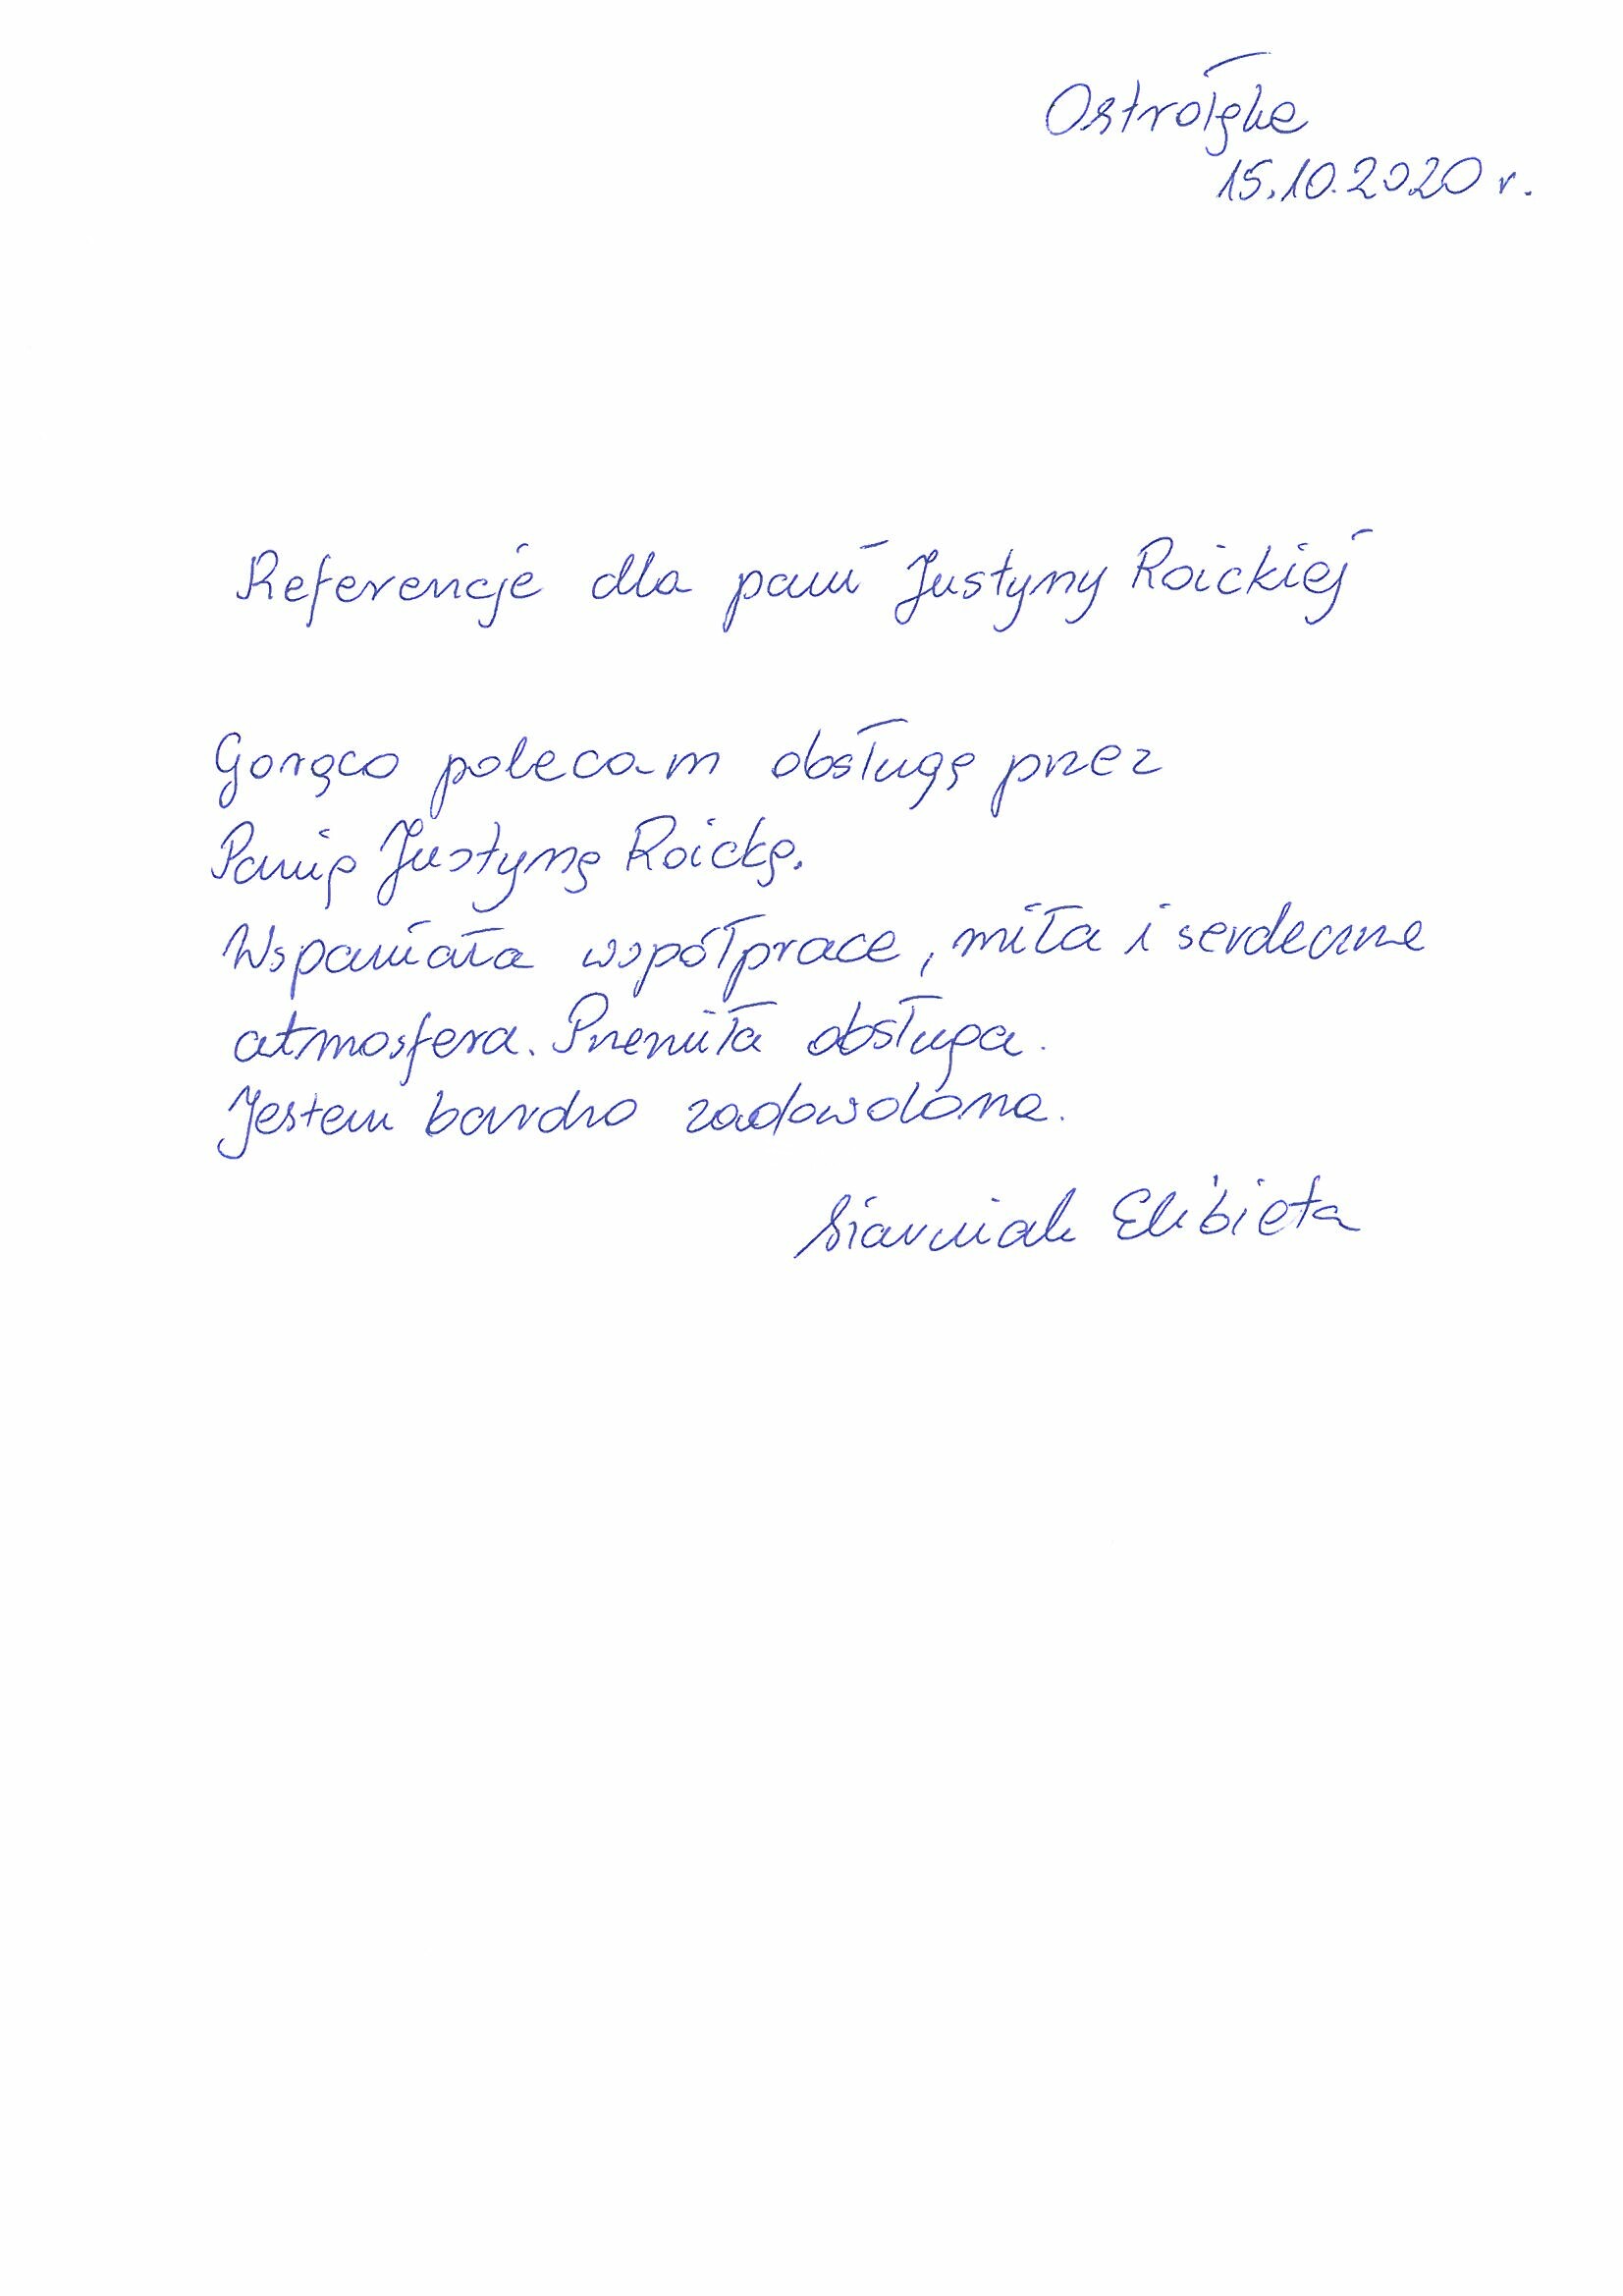 Ostrołęka
15.10.2020 r.
Referencje dla pani Justyny Roickiej
Gorąco polecam obsługę przez
Panią Justynę Roicką.
Wspaniała współpraca, miła i serdeczna
atmosfera. Przemiła obsługa.
Jestem bardzo zadowolona.
Elżbieta